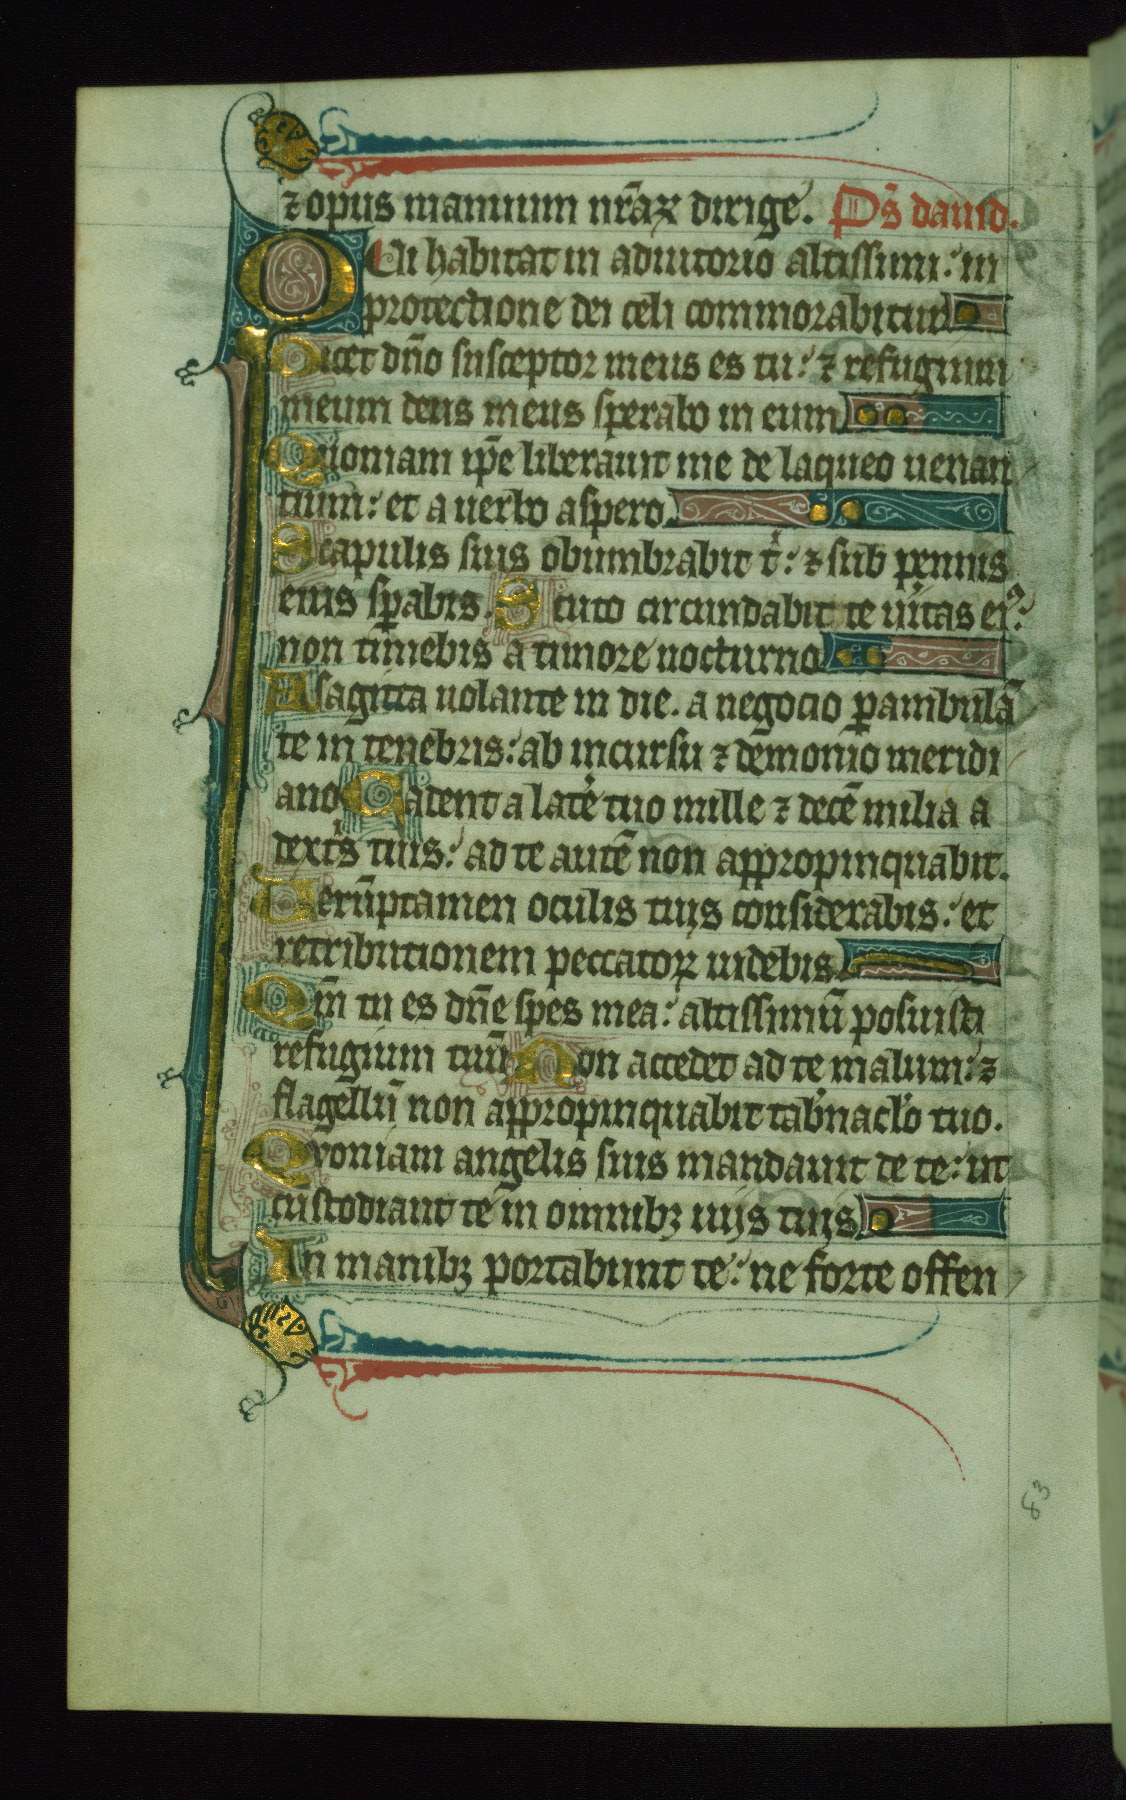 ⁊ opus manuum nr̄aꝝ dirige. Ps̄ dauid.
QUi habitat in adiutorio altissimi: in
protectione dei celi commorabitur
Dicet dn̄o susceptor meus es tu: ⁊ refugium
meum deus meus sperabo in eum
Quoniam ip̄e liberauit me de laqueo uenan
tium: et a uerbo aspero.
Scapulis suis obumbrabit tͥ: ⁊ sub pennis
eius sꝑabis. Scuto circundabit te uͥtas eiꝰ:
non timebis a timore nocturno
A sagitta uolante in die. a negocio ꝑambulā
te in tenebris: ab incursu ⁊ demonio meridi
ano Cadent a lat̄e tuo mille ⁊ decē milia a
dextͥs tuis: ad te autē non appropinquabit.
Uerūptamen oculis tuis considerabis: et
retributionem peccatoꝝ uidebis
Qm̄ tu es dn̄e spes mea: altissimū posuisti
refugium tuū Non accedet ad te malum: ⁊
flagellū non appropinquabit tab̄nacl̄o tuo.
Quoniam angelis suis mandauit de te: ut
custodiant te in omnibꝫ uijs tuis
In manibꝫ portabunt te: ne forte offen
83